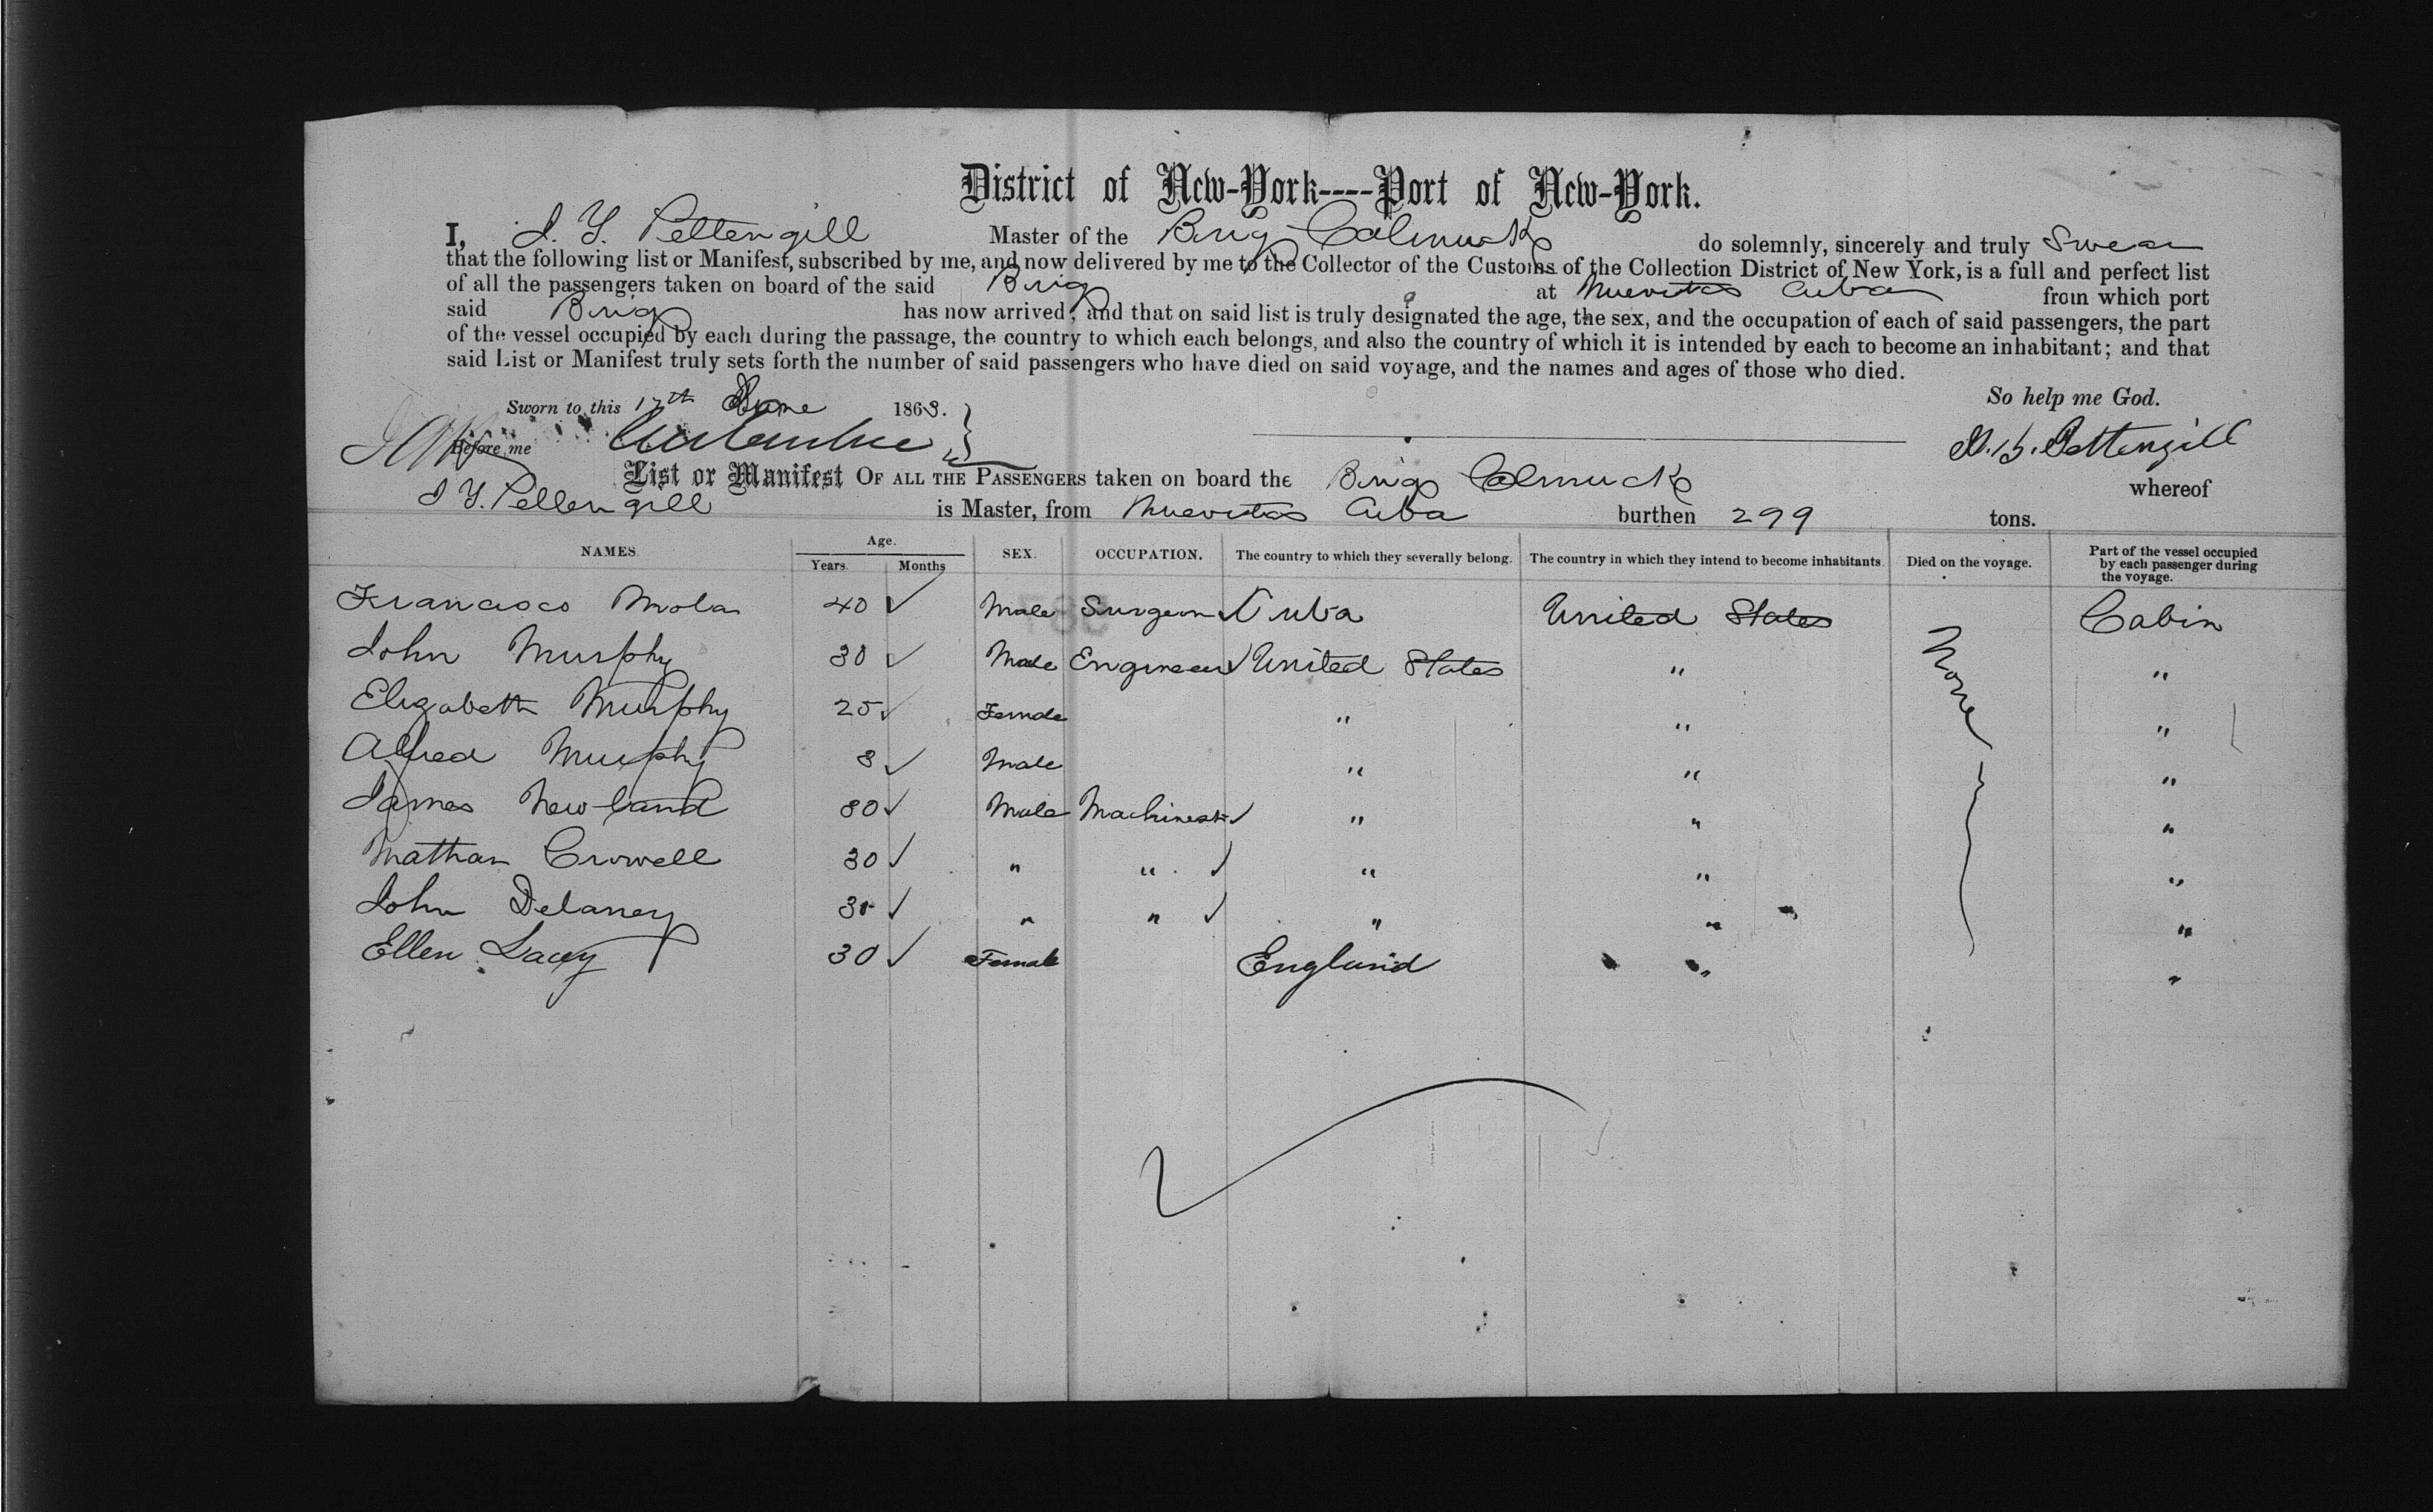 District of New-York----Port of New-York.
I, J. Y. Pettengill Master of the Brig Calmuck do solemnly, sincerely and truly Swear
that the following list or Manifest, subscribed by me, and now delivered by me to the Collector of the Customs of the Collection District of New York, is a full and perfect list
of all the passengers taken on board of the said Brig at Nuevitas Cuba from which port
said Brig has now arrived; and that on said list is truly designated the age, the sex, and the occupation of each of said passengers, the part
of the vessel occupied by each during the passage, the country to which each belongs, and also the country of which it is intended by each to become an inhabitant; and that
said List or Manifest truly sets forth the number of said passengers who have died on said voyage, and the names and ages of those who died.
So help me God.
Sworn to this 17th June 1863.
Before me
Pettengill
List or Manifest OF ALL THE PASSENGERS taken on board the Brig Calmuck whereof
J Y. Pettengill is Master, from Nuevitas Cuba burthen 299 tons.
NAMES. Age. Years. Months SEX. OCCUPATION. The country to which they severally belong. The country in which they intend to become inhabitants. Died on the voyage. Part of the vessel occupied by each passenger during the voyage.
Francisco Mola 40 Male Surgeon Cuba United States None Cabin
John Murphy 30 Male Engineer United States " "
Elizabeth Murphy 25 Female " " "
Alfred Murphy 3 Male " " "
James Newland 30 Male Machinest " " "
Nathan Crowell 30 " " " " "
John Delaney 30 " " " " "
Ellen Lacey 30 Female England " "